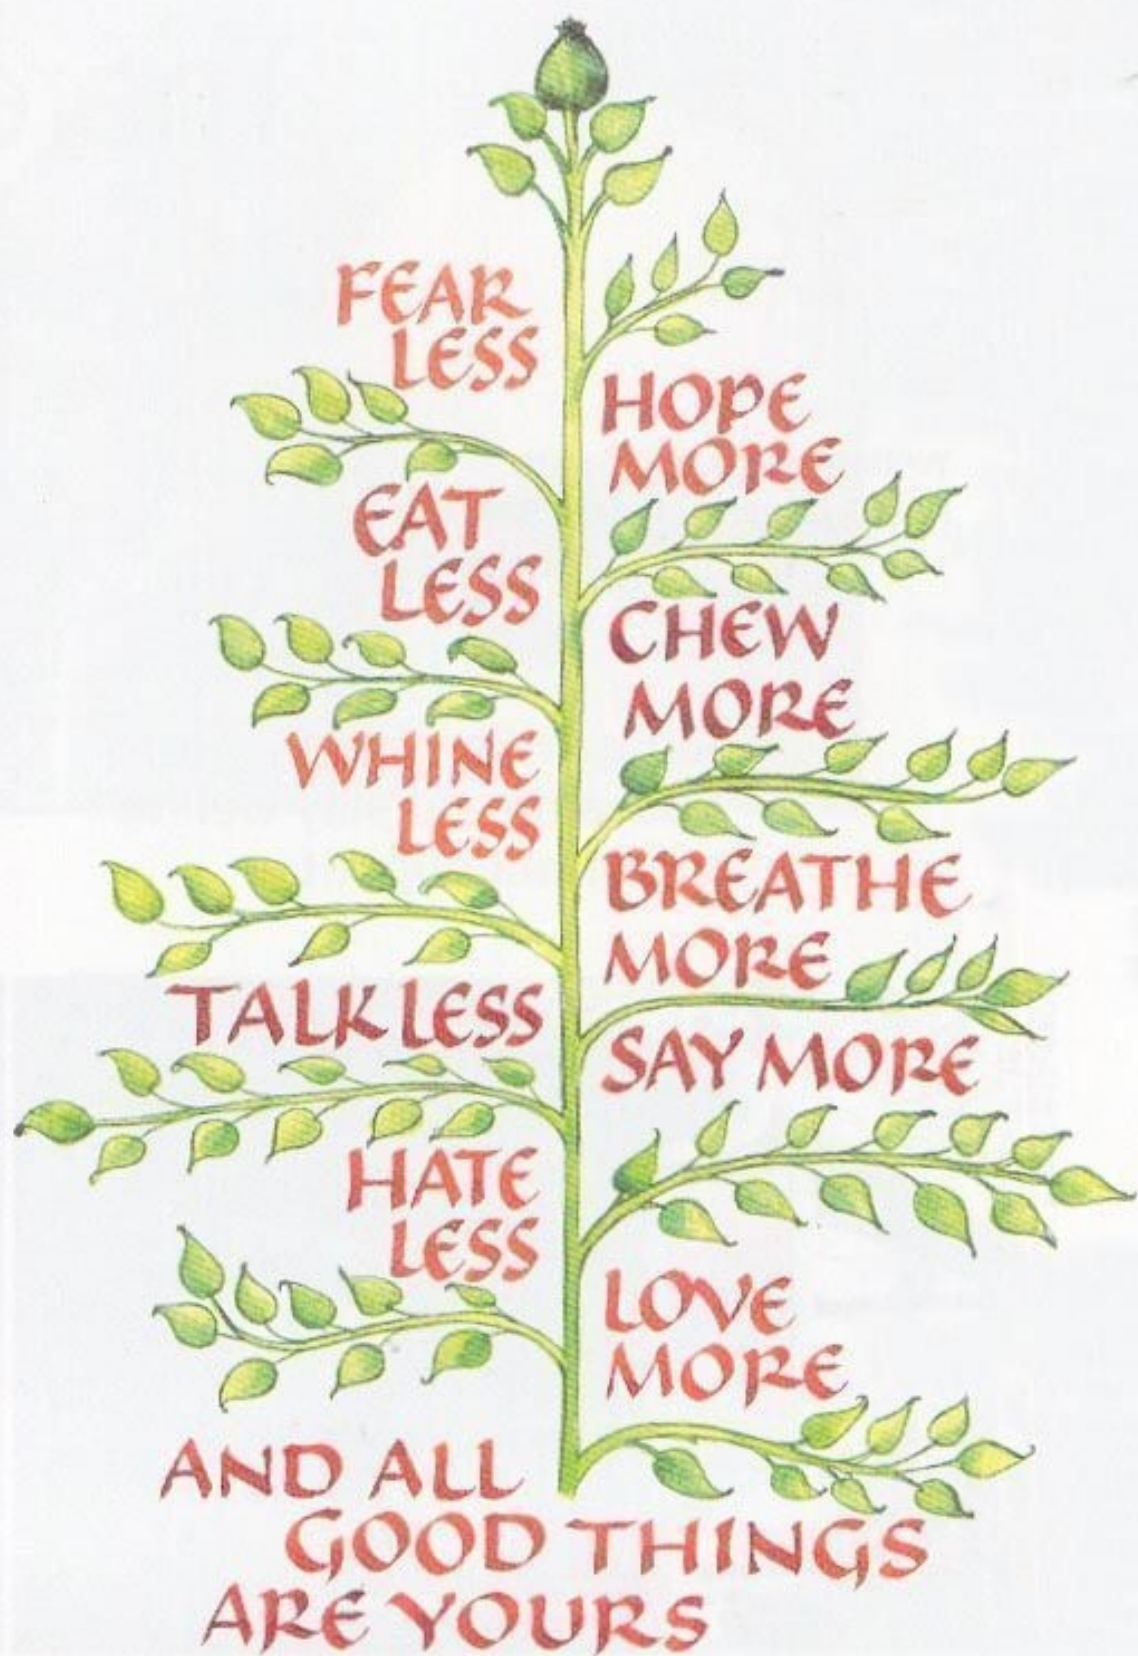 FEAR
LESS
HOPE
MORE
EAT
LESS
CHEW
MORE
WHINE
LESS
BREATHE
MORE
TALK LESS
SAY MORE
HATE
LESS
LOVE
MORE
AND ALL
GOOD THINGS
ARE YOURS